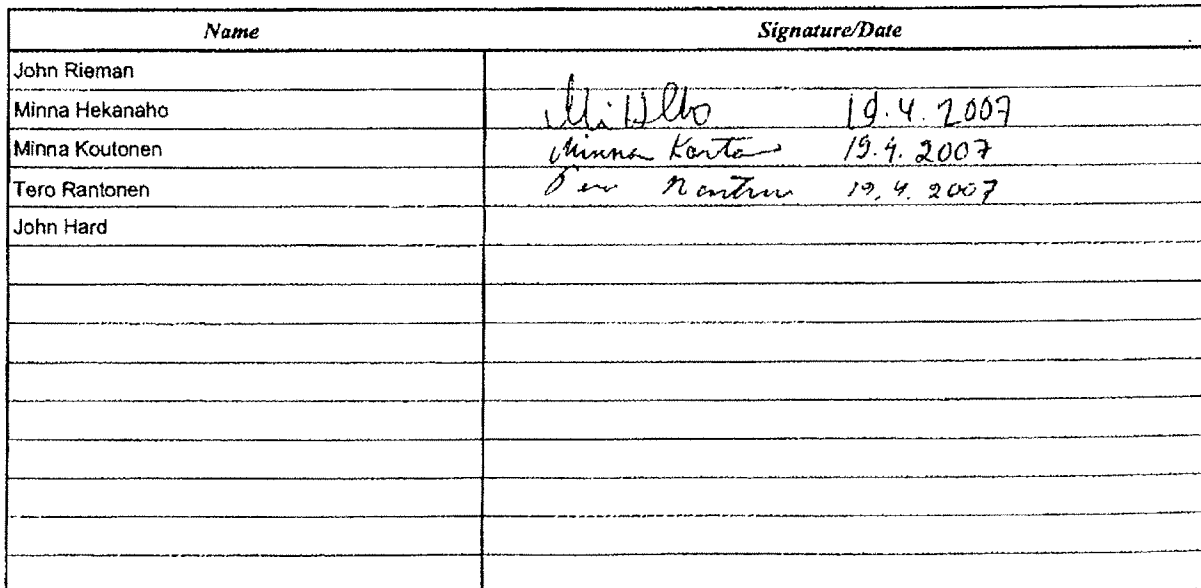 Name Signature/Date
John Rieman
Minna Hekanaho 19.4.2007
Minna Koutonen Minna 19.4.2007
Tero Rantonen 19.4.2007
John Hard